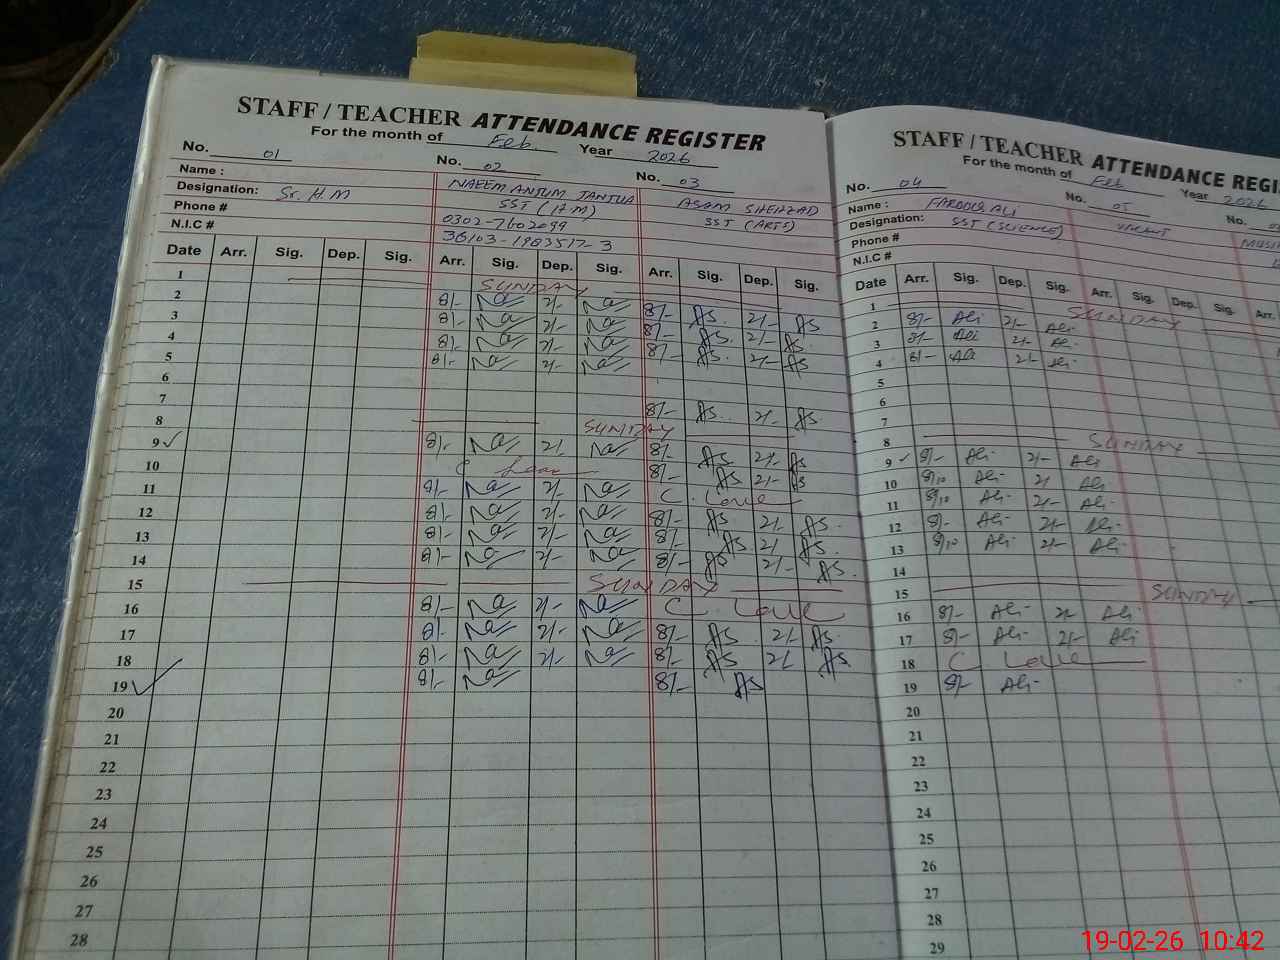 STAFF / TEACHER ATTENDANCE REGISTER
For the month of Feb. Year 2026
No. 01 No. 02 No. 03
Name : NAEEM ANJUM JANJUA ASAM SHEHZAD
Designation: Sr. H.M SST (H.M) SST (ARTS)
Phone # 0302-7602099
N.I.C # 36103-1983517-3
Date Arr. Sig. Dep. Sig. Arr. Sig. Dep. Sig. Arr. Sig. Dep. Sig.
1 SUNDAY
2 8/- Na 2/- Na 8/- AS 2/- AS
3 8/- Na 2/- Na 8/- AS. 2/- AS.
4 8/- Na 2/- Na 8/- AS 2/- AS
5 8/- Na 2/- Na
6
7 8/- AS. 2/- AS.
8 SUNDAY
9 ✓ 8/- Na 2/- Na 8/- AS 2/- AS
10 C 8/- AS 2/- AS
11 8/- Na 2/- Na C. Leave
12 8/- Na 2/- Na 8/- AS 2/- AS.
13 8/- Na 2/- Na 8/- AS 2/- AS.
14 8/- Na 2/- Na 8/- AS 2/- AS.
15 SUNDAY
16 8/- Na 2/- Na C. Leave
17 8/- Na 2/- Na 8/- AS 2/- AS.
18 8/- Na 2/- Na 8/- AS 2/- AS.
19 ✓ 8/- Na 8/- AS
20
21
22
23
24
25
26
27
28
STAFF / TEACHER ATTENDANCE REGI
For the month of Feb Year 2026
No. 04 No. 05 No.
Name : FAROOQ ALI VACANT
Designation: SST (SCIENCE)
Phone #
N.I.C #
Date Arr. Sig. Dep. Sig. Arr. Sig. Dep. Sig. Arr
1 SUNDAY
2 8/- Ali 2/- Ali
3 8/- Ali 2/- Ali
4 8/- Ali 2/- Ali
5
6
7
8 SUNDAY
9 ✓ 8/- Ali 2/- Ali
10 8/10 Ali 2/- Ali
11 8/10 Ali- 2/- Ali
12 8/- Ali- 2/- Ali-
13 8/10 Ali- 2/- Ali-
14
15 SUNDAY
16 8/- Ali- 2/- Ali
17 8/- Ali- 2/- Ali
18 C Leave
19 8/- Ali-
20
21
22
23
24
25
26
27
28
29
19-02-26 10:42